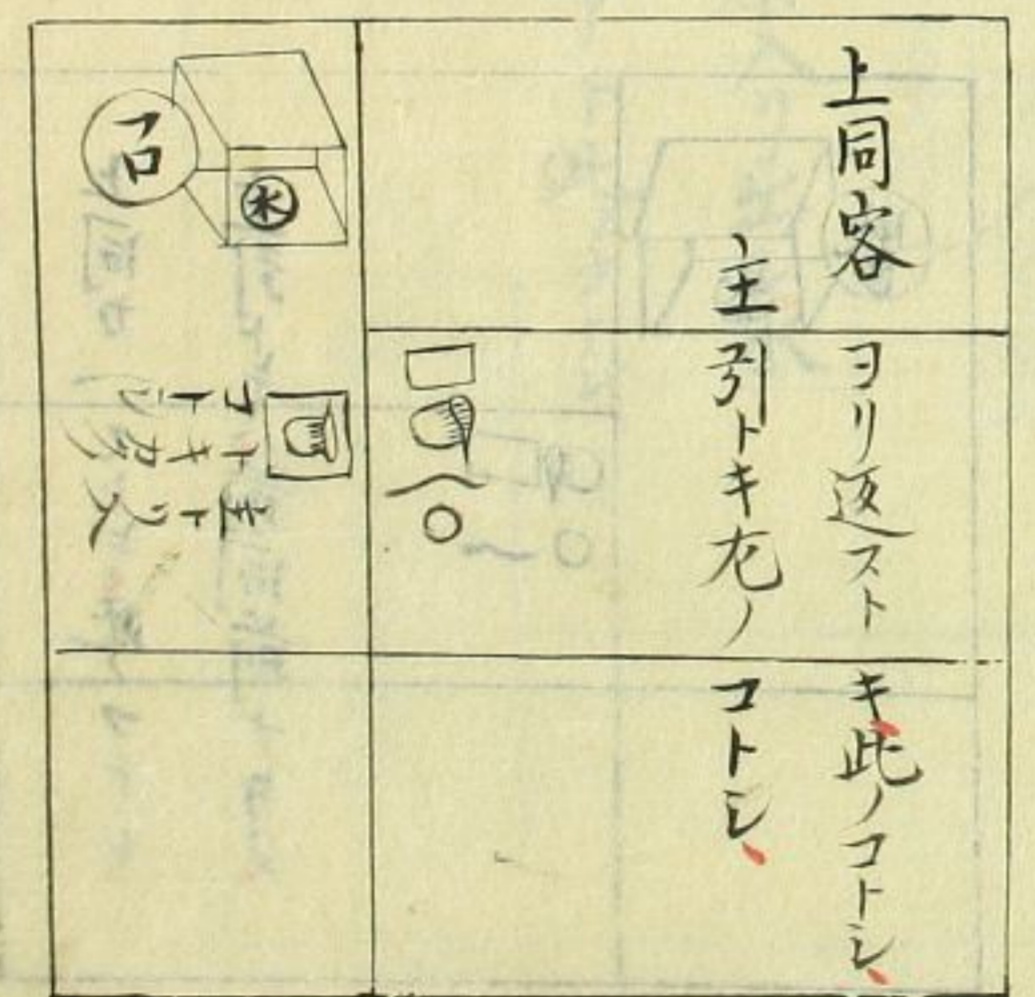 上同客ヨリ返ストキ此ノコトシ、
主引トキ左ノコトシ、
水
フロ
主トリ
トキカ
コト